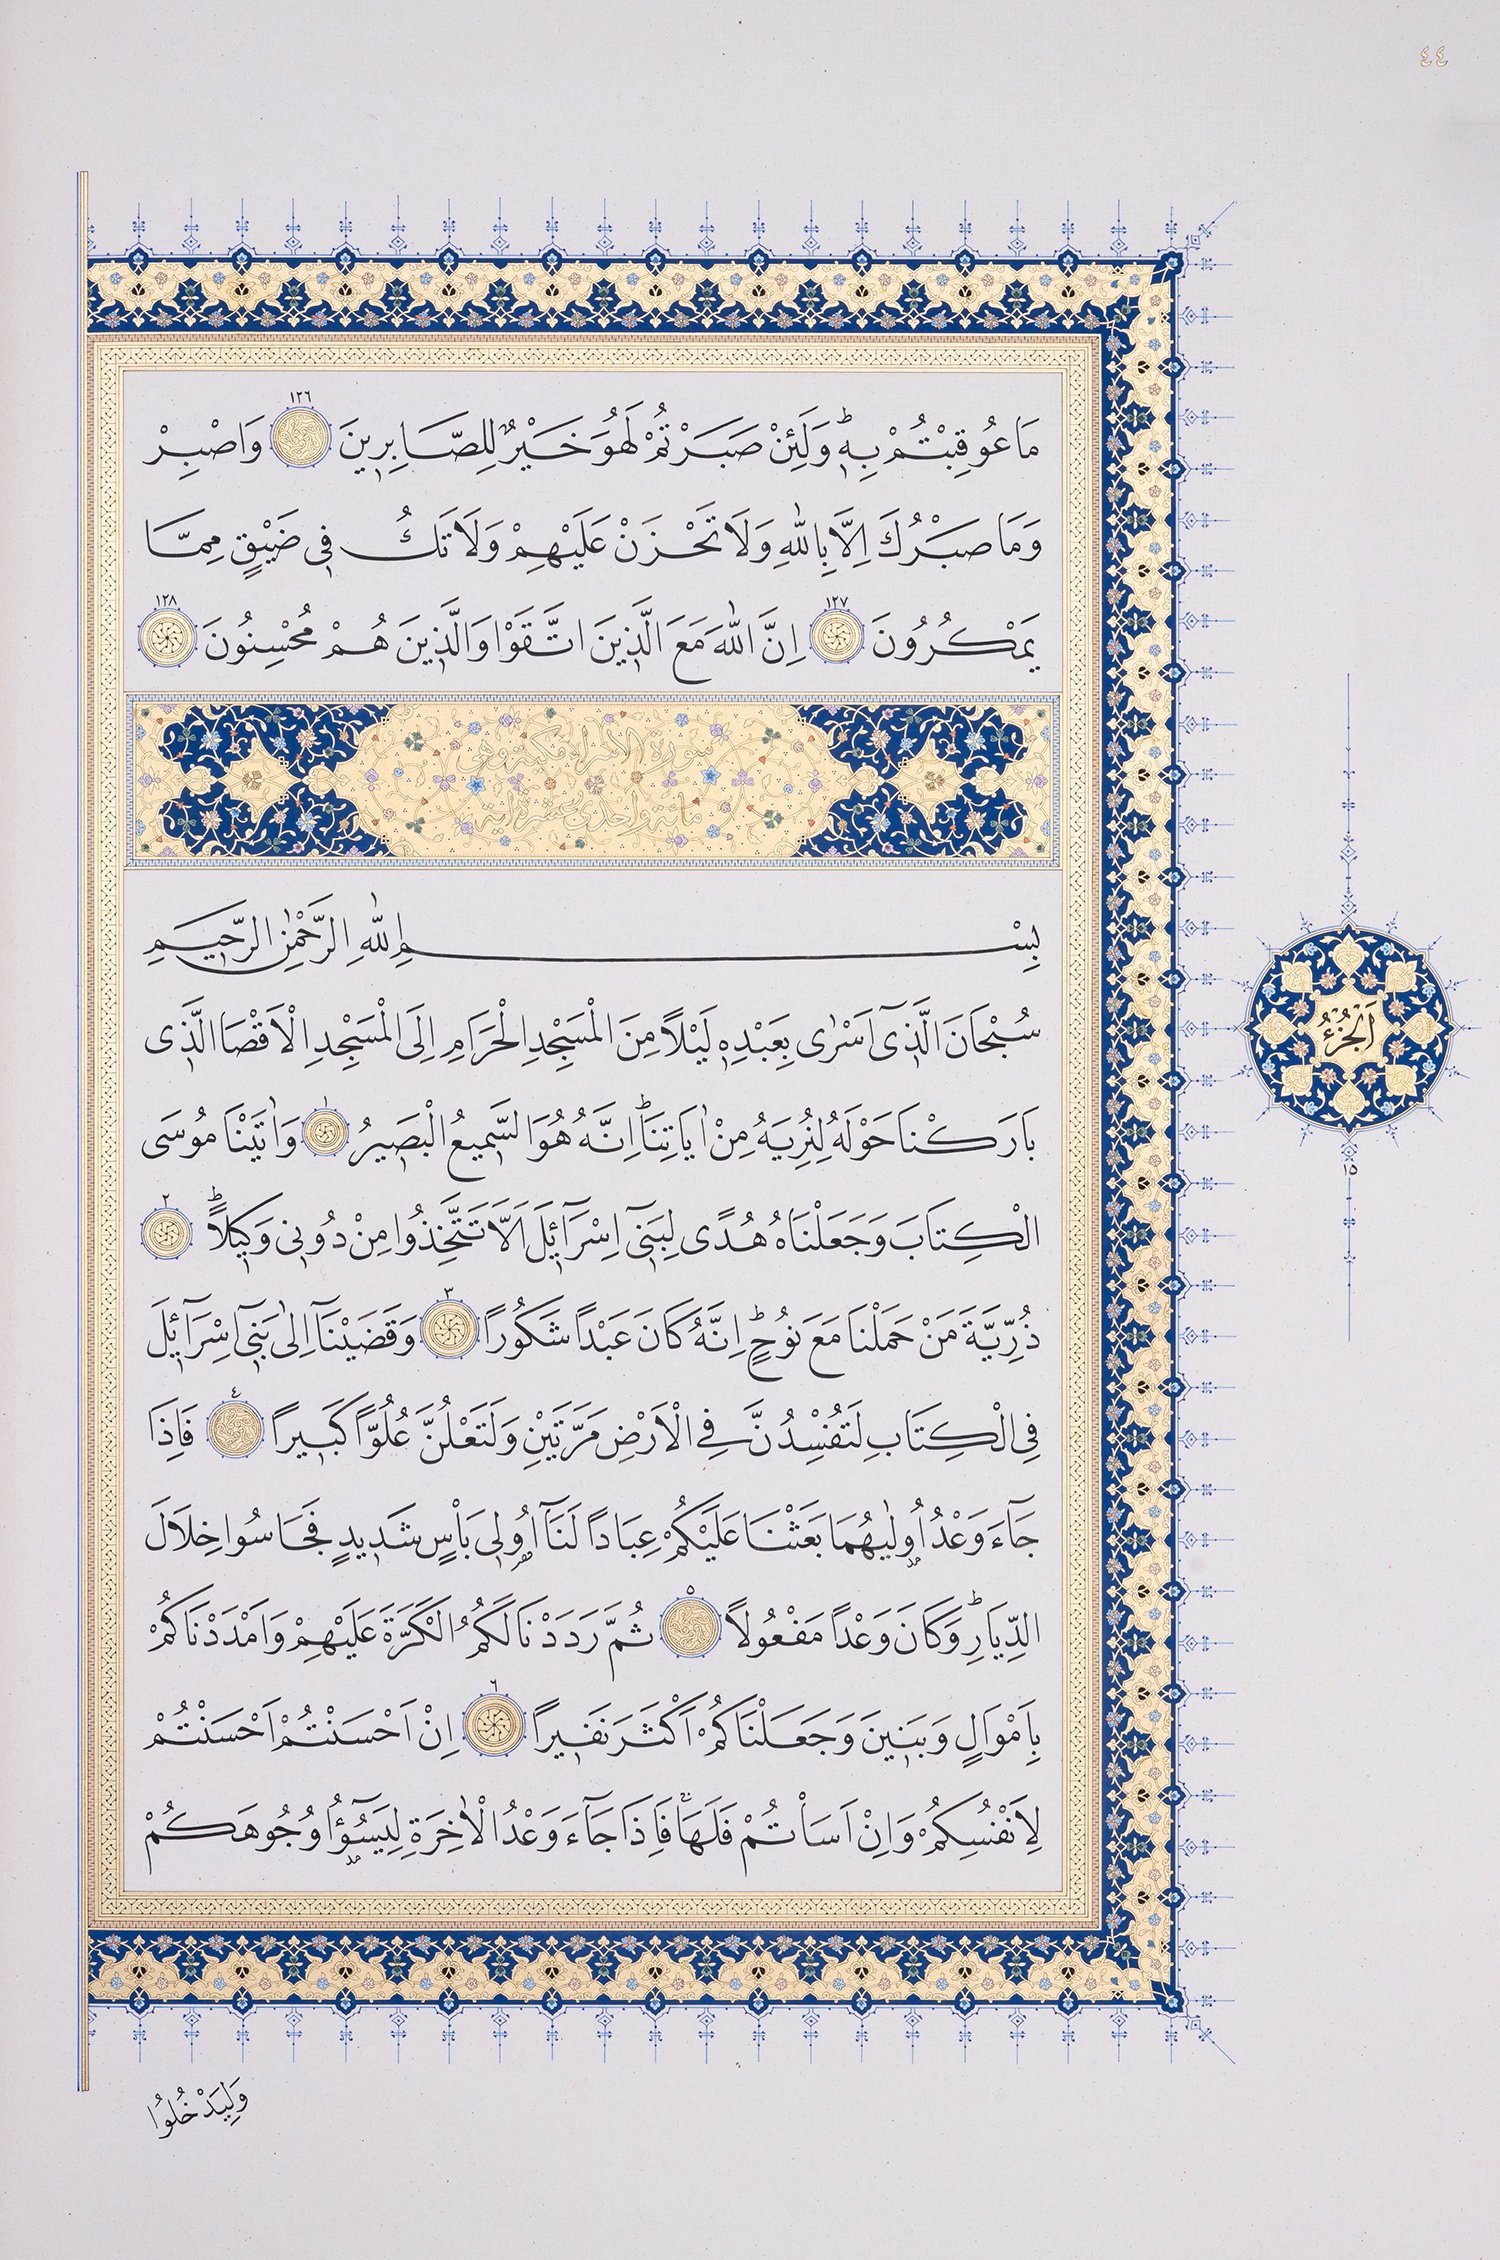 ٤٤
مَا عُوقِبْتُمْ بِهِ وَلَئِنْ صَبَرْتُمْ لَهُوَ خَيْرٌ لِلصَّابِرِينَ ١٢٦ وَاصْبِرْ
وَمَا صَبْرُكَ اِلَّا بِاللّٰهِ وَلَا تَحْزَنْ عَلَيْهِمْ وَلَا تَكُ فِي ضَيْقٍ مِمَّا
يَمْكُرُونَ ١٢٧ اِنَّ اللّٰهَ مَعَ الَّذِينَ اتَّقَوْا وَالَّذِينَ هُمْ مُحْسِنُونَ ١٢٨
سورة الاسراء مكية وهي
مائة واحدى عشرة اية
بِسْمِ اللّٰهِ الرَّحْمٰنِ الرَّحِيمِ
سُبْحَانَ الَّذِٓي اَسْرٰى بِعَبْدِهِ لَيْلًا مِنَ الْمَسْجِدِ الْحَرَامِ اِلَى الْمَسْجِدِ الْاَقْصَا الَّذِي
اَلْجُزْءُ
بَارَكْنَا حَوْلَهُ لِنُرِيَهُ مِنْ اٰيَاتِنَا اِنَّهُ هُوَ السَّمِيعُ الْبَصِيرُ ١ وَاٰتَيْنَا مُوسَى
١٥
الْكِتَابَ وَجَعَلْنَاهُ هُدًى لِبَنِٓي اِسْرَٓائِلَ اَلَّا تَتَّخِذُوا مِنْ دُونِي وَكِيلًا ٢
ذُرِّيَّةَ مَنْ حَمَلْنَا مَعَ نُوحٍ اِنَّهُ كَانَ عَبْدًا شَكُورًا ٣ وَقَضَيْنَٓا اِلٰى بَنِٓي اِسْرَٓائِلَ
فِي الْكِتَابِ لَتُفْسِدُنَّ فِي الْاَرْضِ مَرَّتَيْنِ وَلَتَعْلُنَّ عُلُوًّا كَبِيرًا ٤ فَاِذَا
جَٓاءَ وَعْدُ اُولٰيهُمَا بَعَثْنَا عَلَيْكُمْ عِبَادًا لَنَٓا اُولِي بَأْسٍ شَدِيدٍ فَجَاسُوا خِلَالَ
الدِّيَارِ وَكَانَ وَعْدًا مَفْعُولًا ٥ ثُمَّ رَدَدْنَا لَكُمُ الْكَرَّةَ عَلَيْهِمْ وَاَمْدَدْنَاكُمْ
بِاَمْوَالٍ وَبَنِينَ وَجَعَلْنَاكُمْ اَكْثَرَ نَفِيرًا ٦ اِنْ اَحْسَنْتُمْ اَحْسَنْتُمْ
لِاَنْفُسِكُمْ وَاِنْ اَسَأْتُمْ فَلَهَا فَاِذَا جَٓاءَ وَعْدُ الْاٰخِرَةِ لِيَسُٓؤُا وُجُوهَكُمْ
وَلِيَدْخُلُوا